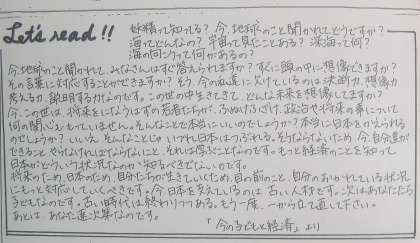 Let's read!!
妖精って知ってる？今、地球のこと聞かれてどうですか？
海ってどんなの？宇宙って見たことある？深海って何？
海の向こうって何があるの？
今、地球のこと聞かれて、みなさんはすぐ答えられますか？すぐに頭の中に想像できますか？
その言葉に対応することができますか？そう、今の私達に欠けているのは決断力、想像力
考える力、説明する力なのです。この世の中生きてきて、どんな未来を想像してますか？
今、この世は、将来をになうはずの若者たちが、ふぬけふざけ、政治や将来の事について
何の関心ももっていません。そんなことで本当にいいのでしょうか？本当に日本をかえられる
のでしょうか？いいえ、そんなことじゃいずれ日本はつぶれる。そうならないため、今、自分達が
できること、やらなければならないこと、それは学ぶことなのです。もっと経済のことを知って
日本がどういう状況なのか知るべきではないのです。
将来のため、日本のため、自分たちが生きていくため、目の前のこと、自分のおかれている状況
にもっと対応していくべきです。今、日本を支えているのは古い人材です。次はあなたたち
子どもなのです。古い時代は終わりつつある。もう一度、一から立て直して下さい。
あとは、あなた達次第なのです。
「今の子どもと経済」より